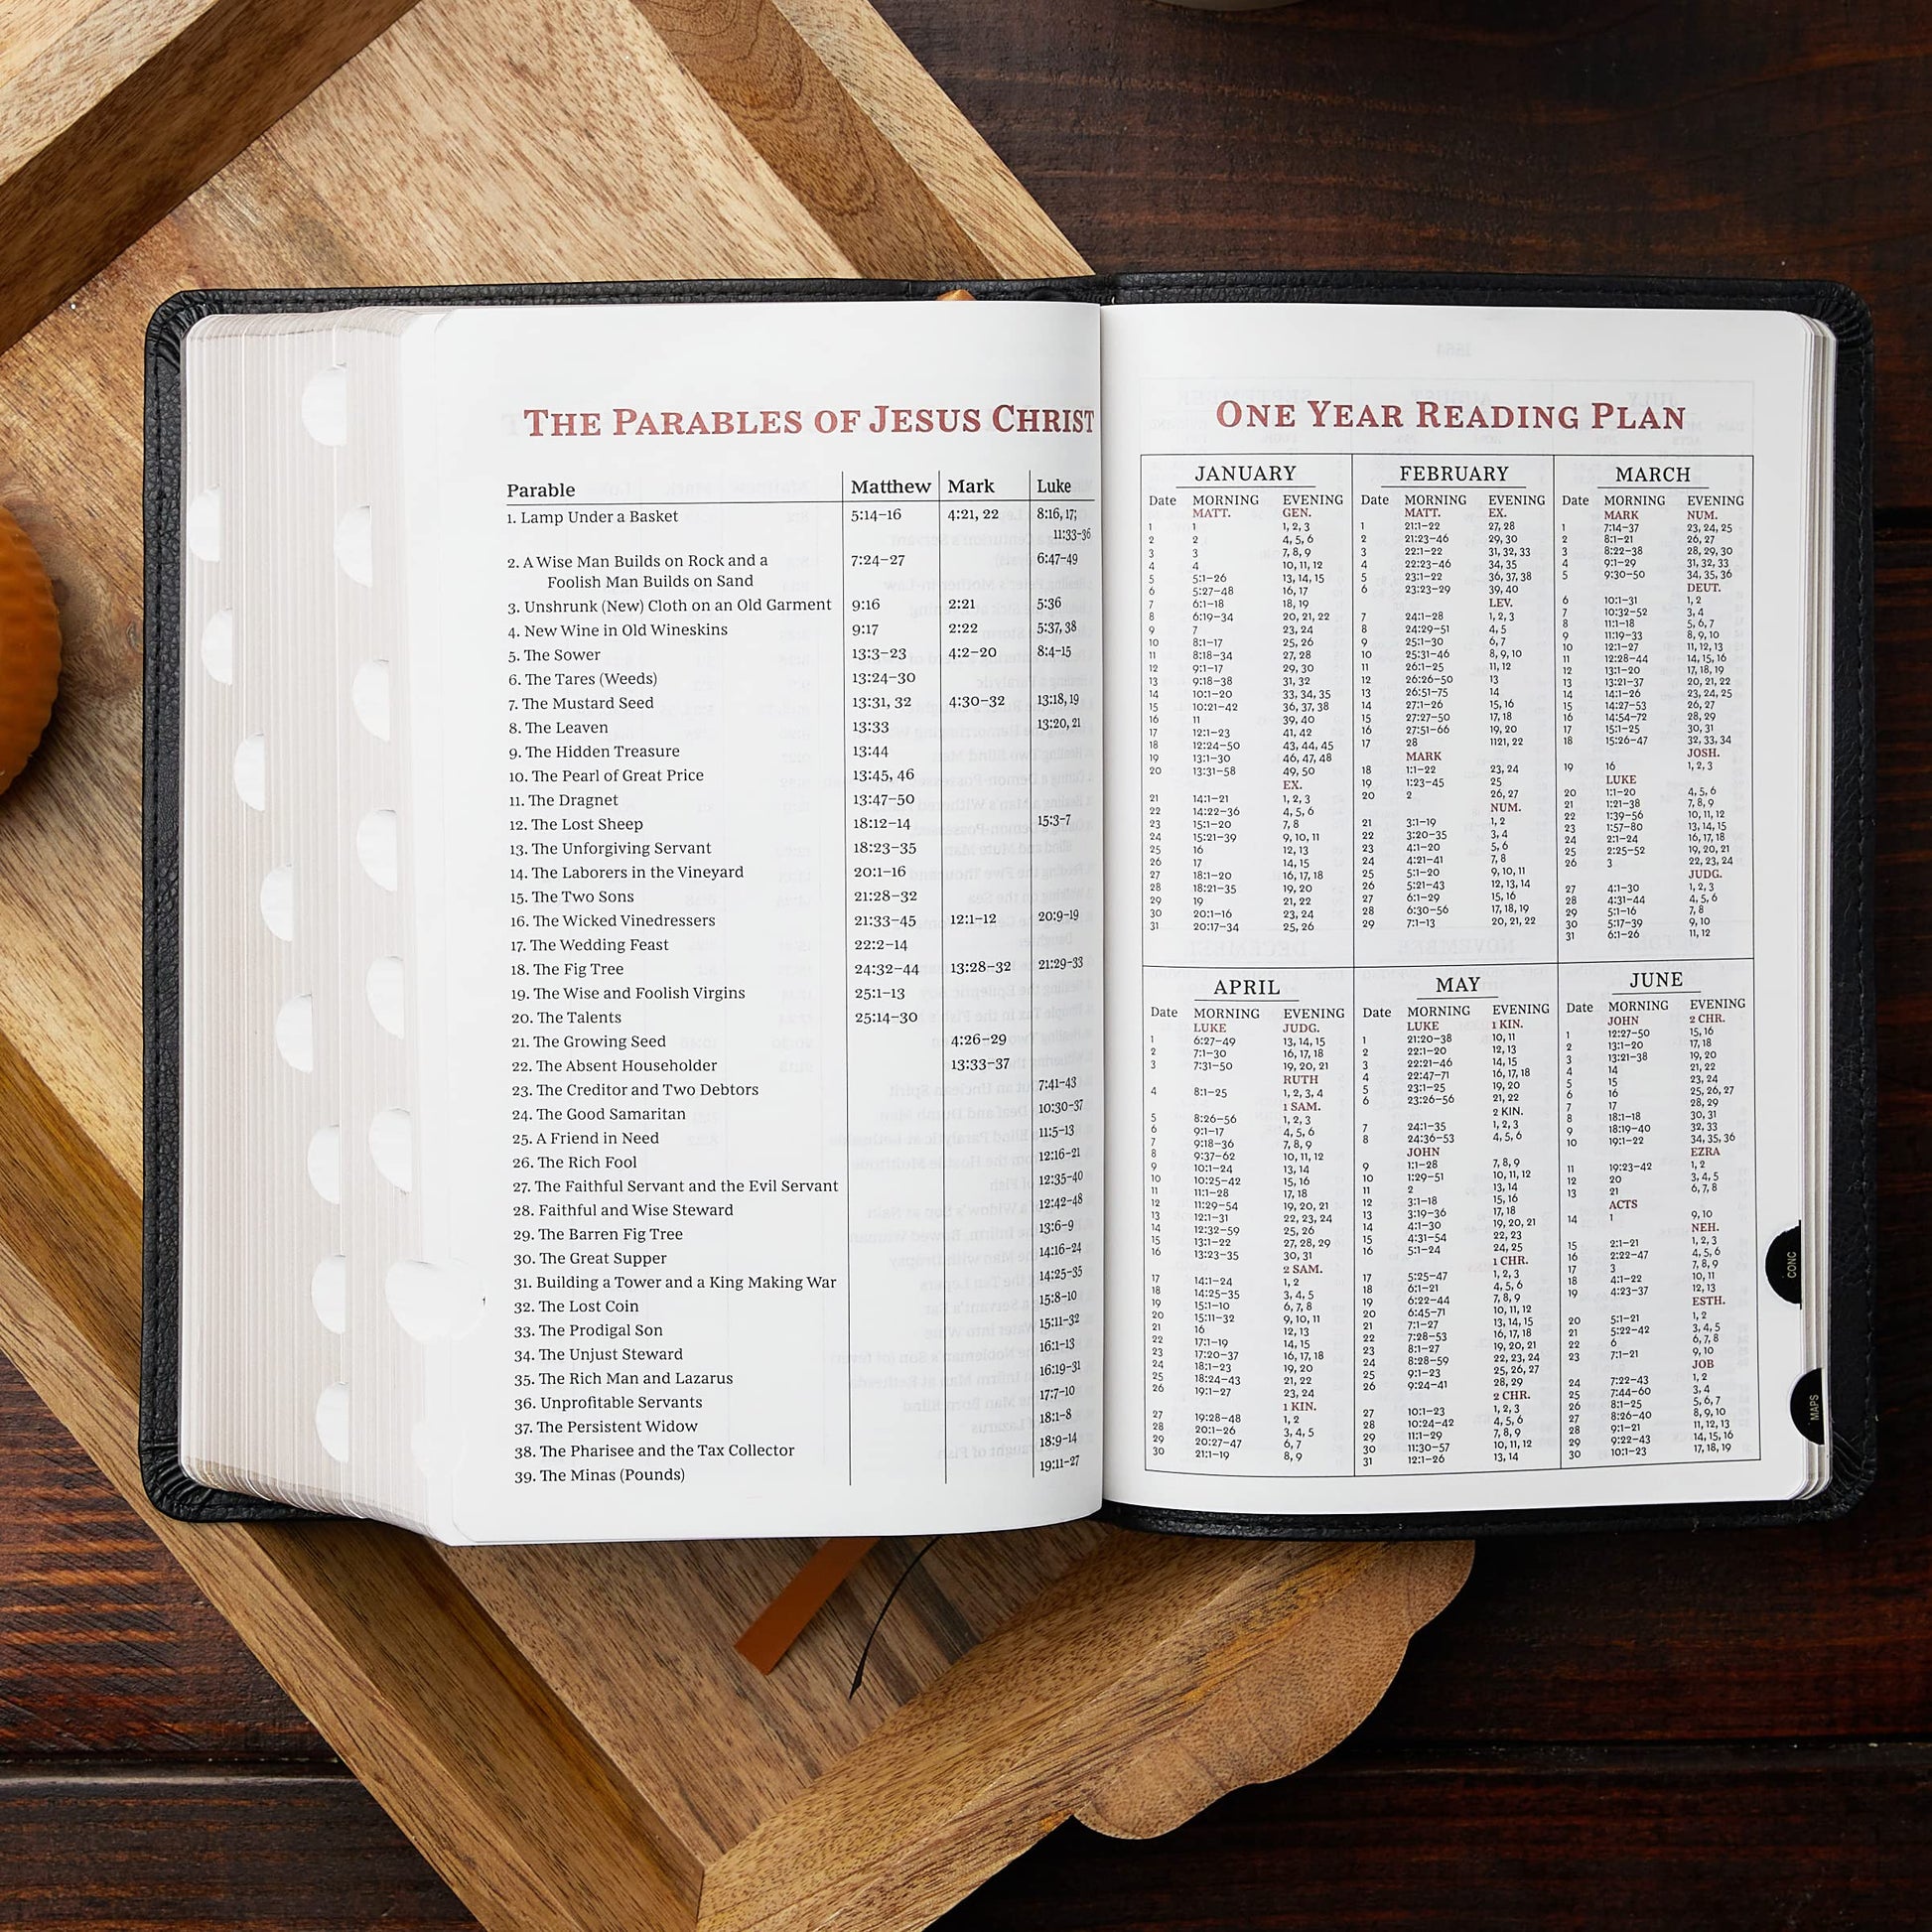 THE PARABLES OF JESUS CHRIST
Parable Matthew Mark Luke
1. Lamp Under a Basket 5:14–16 4:21, 22 8:16, 17;
11:33-36
2. A Wise Man Builds on Rock and a 7:24–27 6:47-49
Foolish Man Builds on Sand
3. Unshrunk (New) Cloth on an Old Garment 9:16 2:21 5:36
4. New Wine in Old Wineskins 9:17 2:22 5:37, 38
5. The Sower 13:3–23 4:2–20 8:4-15
6. The Tares (Weeds) 13:24–30
7. The Mustard Seed 13:31, 32 4:30–32 13:18, 19
8. The Leaven 13:33 13:20, 21
9. The Hidden Treasure 13:44
10. The Pearl of Great Price 13:45, 46
11. The Dragnet 13:47–50
12. The Lost Sheep 18:12–14 15:3-7
13. The Unforgiving Servant 18:23–35
14. The Laborers in the Vineyard 20:1–16
15. The Two Sons 21:28–32
16. The Wicked Vinedressers 21:33–45 12:1–12 20:9-19
17. The Wedding Feast 22:2–14
18. The Fig Tree 24:32–44 13:28–32 21:29-33
19. The Wise and Foolish Virgins 25:1–13
20. The Talents 25:14–30
21. The Growing Seed 4:26–29
22. The Absent Householder 13:33–37
23. The Creditor and Two Debtors 7:41-43
24. The Good Samaritan 10:30-37
25. A Friend in Need 11:5-13
26. The Rich Fool 12:16-21
27. The Faithful Servant and the Evil Servant 12:35-40
28. Faithful and Wise Steward 12:42-48
29. The Barren Fig Tree 13:6-9
30. The Great Supper 14:16-24
31. Building a Tower and a King Making War 14:25-35
32. The Lost Coin 15:8-10
33. The Prodigal Son 15:11-32
34. The Unjust Steward 16:1-13
35. The Rich Man and Lazarus 16:19-31
36. Unprofitable Servants 17:7-10
37. The Persistent Widow 18:1-8
38. The Pharisee and the Tax Collector 18:9-14
39. The Minas (Pounds) 19:11-27
ONE YEAR READING PLAN
JANUARY
Date MORNING EVENING
MATT. GEN.
1 1 1, 2, 3
2 2 4, 5, 6
3 3 7, 8, 9
4 4 10, 11, 12
5 5:1–26 13, 14, 15
6 5:27–48 16, 17
7 6:1–18 18, 19
8 6:19–34 20, 21, 22
9 7 23, 24
10 8:1–17 25, 26
11 8:18–34 27, 28
12 9:1–17 29, 30
13 9:18–38 31, 32
14 10:1–20 33, 34, 35
15 10:21–42 36, 37, 38
16 11 39, 40
17 12:1–23 41, 42
18 12:24–50 43, 44, 45
19 13:1–30 46, 47, 48
20 13:31–58 49, 50
EX.
21 14:1–21 1, 2, 3
22 14:22–36 4, 5, 6
23 15:1–20 7, 8
24 15:21–39 9, 10, 11
25 16 12, 13
26 17 14, 15
27 18:1–20 16, 17, 18
28 18:21–35 19, 20
29 19 21, 22
30 20:1–16 23, 24
31 20:17–34 25, 26
FEBRUARY
Date MORNING EVENING
MATT. EX.
1 21:1–22 27, 28
2 21:23–46 29, 30
3 22:1–22 31, 32, 33
4 22:23–46 34, 35
5 23:1–22 36, 37, 38
6 23:23–29 39, 40
LEV.
7 24:1–28 1, 2, 3
8 24:29–51 4, 5
9 25:1–30 6, 7
10 25:31–46 8, 9, 10
11 26:1–25 11, 12
12 26:26–50 13
13 26:51–75 14
14 27:1–26 15, 16
15 27:27–50 17, 18
16 27:51–66 19, 20
17 28 1121, 22
MARK
18 1:1–22 23, 24
19 1:23–45 25
20 2 26, 27
NUM.
21 3:1–19 1, 2
22 3:20–35 3, 4
23 4:1–20 5, 6
24 4:21–41 7, 8
25 5:1–20 9, 10, 11
26 5:21–43 12, 13, 14
27 6:1–29 15, 16
28 6:30–56 17, 18, 19
29 7:1–13 20, 21, 22
MARCH
Date MORNING EVENING
MARK NUM.
1 7:14–37 23, 24, 25
2 8:1–21 26, 27
3 8:22–38 28, 29, 30
4 9:1–29 31, 32, 33
5 9:30–50 34, 35, 36
DEUT.
6 10:1–31 1, 2
7 10:32–52 3, 4
8 11:1–18 5, 6, 7
9 11:19–33 8, 9, 10
10 12:1–27 11, 12, 13
11 12:28–44 14, 15, 16
12 13:1–20 17, 18, 19
13 13:21–37 20, 21, 22
14 14:1–26 23, 24, 25
15 14:27–53 26, 27
16 14:54–72 28, 29
17 15:1–25 30, 31
18 15:26–47 32, 33, 34
JOSH.
19 16 1, 2, 3
LUKE
20 1:1–20 4, 5, 6
21 1:21–38 7, 8, 9
22 1:39–56 10, 11, 12
23 1:57–80 13, 14, 15
24 2:1–24 16, 17, 18
25 2:25–52 19, 20, 21
26 3 22, 23, 24
JUDG.
27 4:1–30 1, 2, 3
28 4:31–44 4, 5, 6
29 5:1–16 7, 8
30 5:17–39 9, 10
31 6:1–26 11, 12
APRIL
Date MORNING EVENING
LUKE JUDG.
1 6:27–49 13, 14, 15
2 7:1–30 16, 17, 18
3 7:31–50 19, 20, 21
RUTH
4 8:1–25 1, 2, 3, 4
1 SAM.
5 8:26–56 1, 2, 3
6 9:1–17 4, 5, 6
7 9:18–36 7, 8, 9
8 9:37–62 10, 11, 12
9 10:1–24 13, 14
10 10:25–42 15, 16
11 11:1–28 17, 18
12 11:29–54 19, 20, 21
13 12:1–31 22, 23, 24
14 12:32–59 25, 26
15 13:1–22 27, 28, 29
16 13:23–35 30, 31
2 SAM.
17 14:1–24 1, 2
18 14:25–35 3, 4, 5
19 15:1–10 6, 7, 8
20 15:11–32 9, 10, 11
21 16 12, 13
22 17:1–19 14, 15
23 17:20–37 16, 17, 18
24 18:1–23 19, 20
25 18:24–43 21, 22
26 19:1–27 23, 24
1 KIN.
27 19:28–48 1, 2
28 20:1–26 3, 4, 5
29 20:27–47 6, 7
30 21:1–19 8, 9
MAY
Date MORNING EVENING
LUKE 1 KIN.
1 21:20–38 10, 11
2 22:1–20 12, 13
3 22:21–46 14, 15
4 22:47–71 16, 17, 18
5 23:1–25 19, 20
6 23:26–56 21, 22
2 KIN.
7 24:1–35 1, 2, 3
8 24:36–53 4, 5, 6
JOHN
9 1:1–28 7, 8, 9
10 1:29–51 10, 11, 12
11 2 13, 14
12 3:1–18 15, 16
13 3:19–36 17, 18
14 4:1–30 19, 20, 21
15 4:31–54 22, 23
16 5:1–24 24, 25
1 CHR.
17 5:25–47 1, 2, 3
18 6:1–21 4, 5, 6
19 6:22–44 7, 8, 9
20 6:45–71 10, 11, 12
21 7:1–27 13, 14, 15
22 7:28–53 16, 17, 18
23 8:1–27 19, 20, 21
24 8:28–59 22, 23, 24
25 9:1–23 25, 26, 27
26 9:24–41 28, 29
2 CHR.
27 10:1–23 1, 2, 3
28 10:24–42 4, 5, 6
29 11:1–29 7, 8, 9
30 11:30–57 10, 11, 12
31 12:1–26 13, 14
JUNE
Date MORNING EVENING
JOHN 2 CHR.
1 12:27–50 15, 16
2 13:1–20 17, 18
3 13:21–38 19, 20
4 14 21, 22
5 15 23, 24
6 16 25, 26, 27
7 17 28, 29
8 18:1–18 30, 31
9 18:19–40 32, 33
10 19:1–22 34, 35, 36
EZRA
11 19:23–42 1, 2
12 20 3, 4, 5
13 21 6, 7, 8
ACTS
14 1 9, 10
NEH.
15 2:1–21 1, 2, 3
16 2:22–47 4, 5, 6
17 3 7, 8, 9
18 4:1–22 10, 11
19 4:23–37 12, 13
ESTH.
20 5:1–21 1, 2
21 5:22–42 3, 4, 5
22 6 6, 7, 8
23 7:1–21 9, 10
JOB
24 7:22–43 1, 2
25 7:44–60 3, 4
26 8:1–25 5, 6, 7
27 8:26–40 8, 9, 10
28 9:1–21 11, 12, 13
29 9:22–43 14, 15, 16
30 10:1–23 17, 18, 19
CONC
MAPS